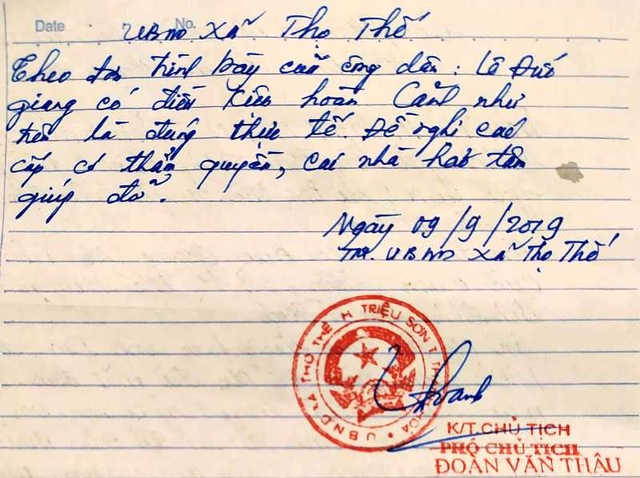 Date No.
UBND xã Thọ Thế
Theo đơn trình bày của công dân: Lê Đức
Giang có điều kiện hoàn cảnh như
trên là đúng thực tế. Đề nghị các
cấp có thẩm quyền, các nhà hảo tâm
giúp đỡ.
Ngày 09/9/2019
TM. UBND xã Thọ Thế
U.B.N.D XÃ THỌ THẾ H. TRIỆU SƠN T. THANH HÓA
K/T.CHỦ TỊCH
PHÓ CHỦ TỊCH
ĐOÀN VĂN THÂU